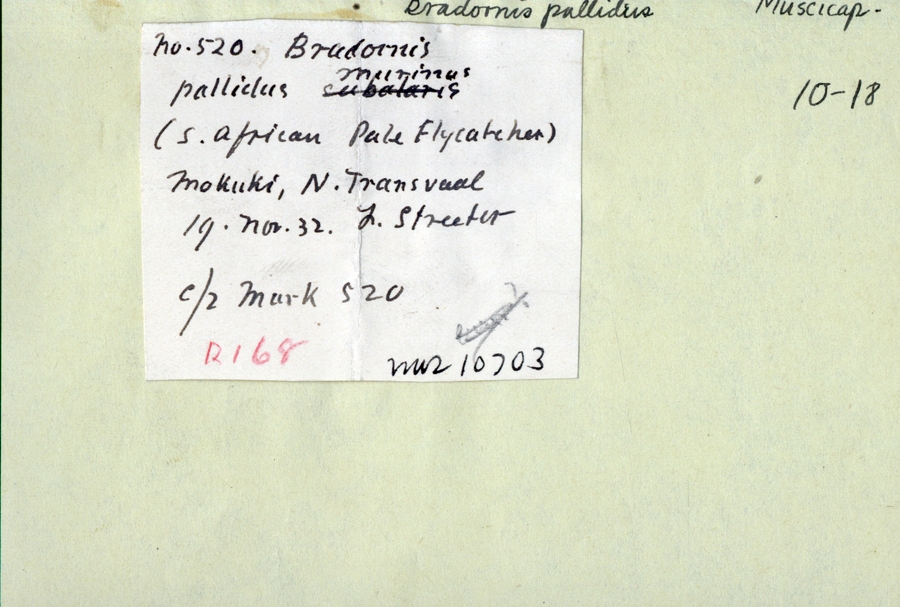 Bradornis pallidus Muscicap.
10-18
No. 520. Bradornis
murinus
pallidus subalaris
(S. African Pale Flycatcher)
Mokuki, N. Transvaal
19. Nov. 32. L. Streeter
c/2 Mark 520
R168
10703